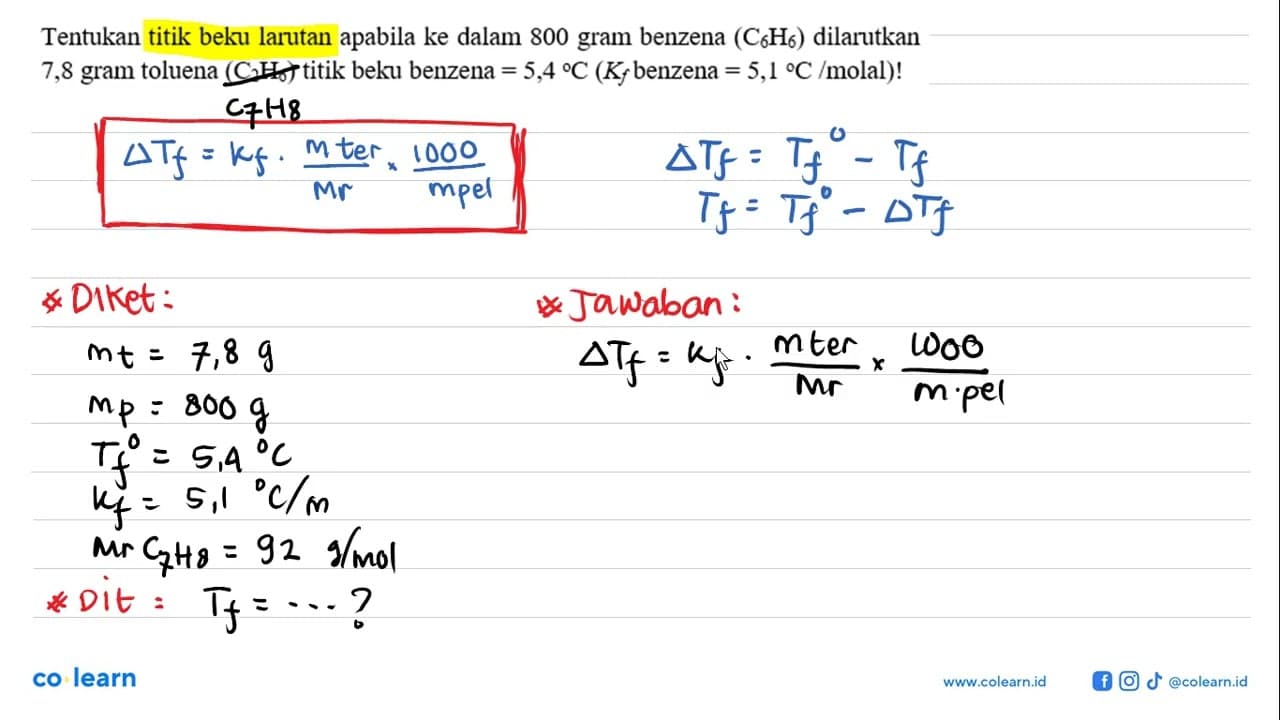 Tentukan titik beku larutan apabila ke dalam 800 gram benzena (C₆H₆) dilarutkan
7,8 gram toluena titik beku benzena = 5,4 °C (Kf benzena = 5,1 °C /molal)!
C7H8
ΔTf = kf . m ter / Mr x 1000 / mpel
ΔTf = Tf° - Tf
Tf = Tf° - ΔTf
* Diket :
mt = 7,8 g
mp = 800 g
Tf° = 5,4 °C
kf = 5,1 °C/m
Mr C7H8 = 92 g/mol
* Dit : Tf = .... ?
* Jawaban :
ΔTf = kf . m ter / Mr x 1000 / m.pel
co learn
www.colearn.id
@colearn.id